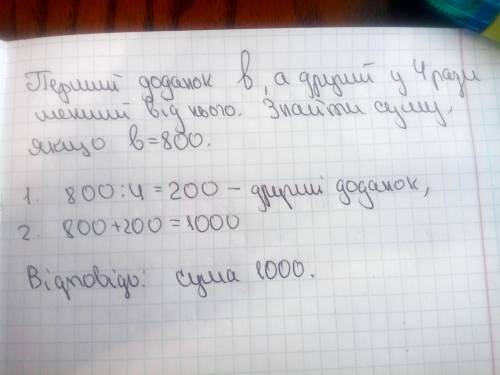 Перший доданок в, а другий у 4 рази
менший від нього. Знайти суму,
якщо в=800.
1. 800:4=200 – другий доданок,
2. 800+200=1000
Відповідь: сума 1000.